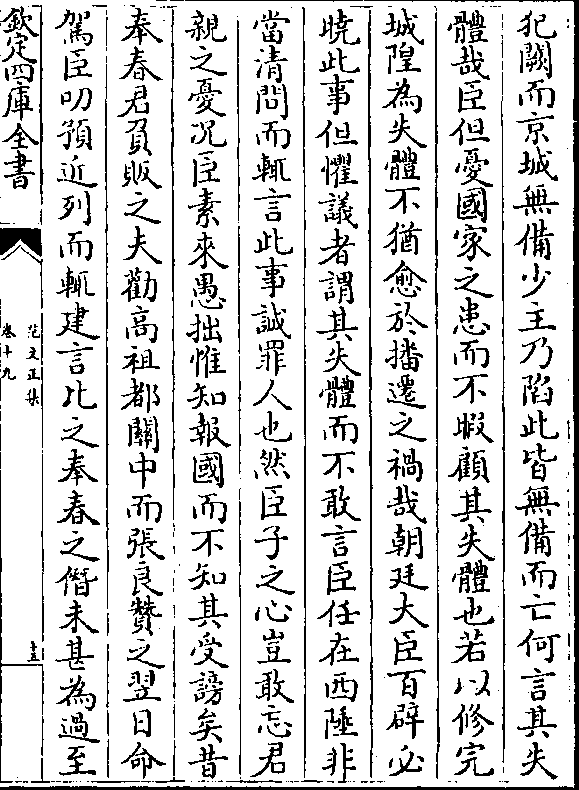 犯闕而京城無備少主乃陷此皆無備而亡何言其失
體哉臣但憂國家之患而不暇顧其失體也若以修完
城隍為失體不猶愈於播遷之禍哉朝廷大臣百辟必
曉此事但懼議者謂其失體而不敢言臣任在西陲非
當清問而輒言此事誠罪人也然臣子之心豈敢忘君
親之憂况臣素來愚拙惟知報國而不知其受謗矣昔
奉春君負販之夫勸高祖都關中而張良贊之翌日命
駕臣叨預近列而輒建言比之奉春之僭未甚為過至
欽定四庫全書
范文正集
卷十九